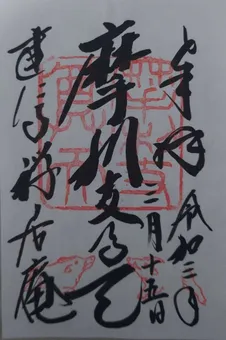 奉拝
令和三年
三月十五日
摩利支尊天
建仁寺
禅居庵